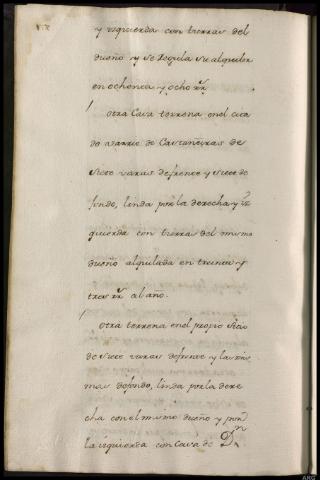 y izquierda con tierras del
dueño y se Regula su alquiler
en ochenta y ocho rr.^s
otra Casa terrena en el cita
do varrio de Castañeyras de
siete varas defrente y siete de
fondo, linda por la derecha y iz
quierda con tierra del mismo
dueño alquilada en treinta y
tres rr.^s al año.
otra terrena en el propio sitio
de siete varas defrente y las mis
mas defondo, linda por la dere
cha con el mismo dueño y por
la izquierda con Casa de D.^n
ARG